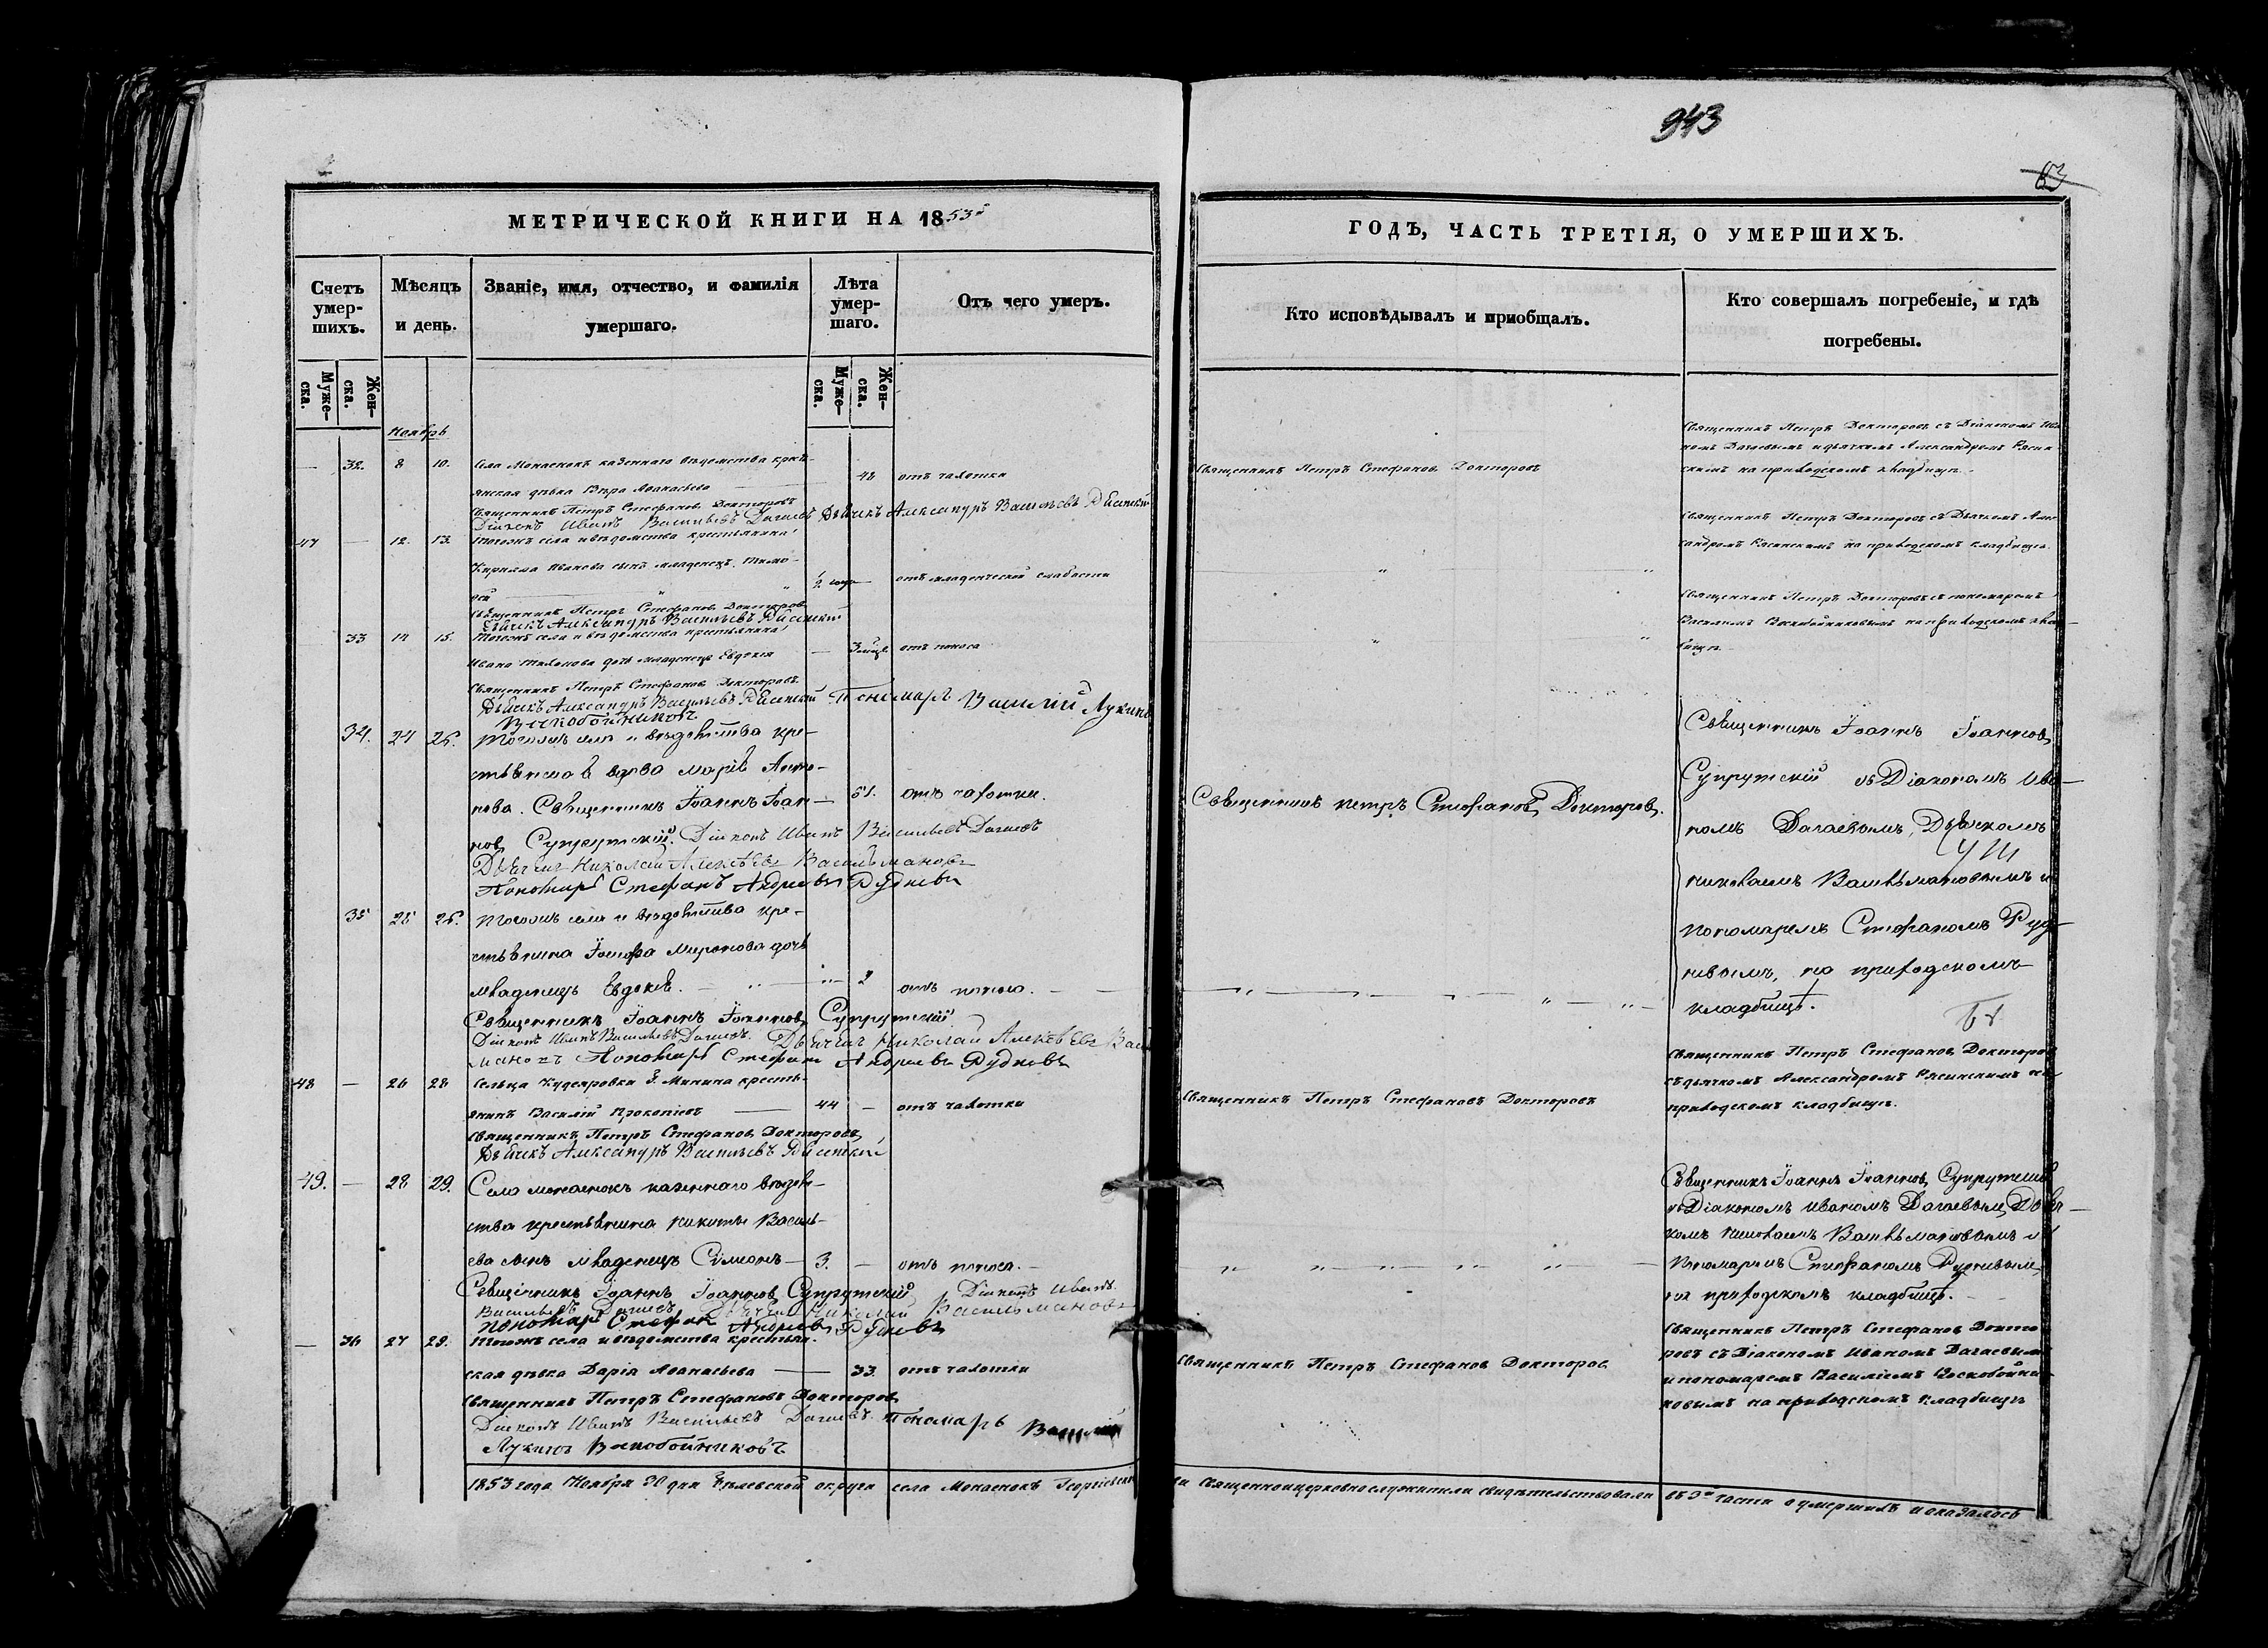 943
83
МЕТРИЧЕСКОЙ КНИГИ НА 1853й
ГОДЪ, ЧАСТЬ ТРЕТІЯ, О УМЕРШИХЪ.
Счетъ умер-шихъ.
Мѣсяцъ и день.
Званіе, имя, отчество, и фамилія умершаго.
Лѣта умер-шаго.
Отъ чего умеръ.
Кто исповѣдывалъ и приобщалъ.
Кто совершалъ погребеніе, и гдѣ погребены.
Муже-ска.
Жен-ска.
Муже-ска.
Жен-ска.
Ноябрь
— 32. 8 10. Села Монаенокъ казеннаго вѣдомства крть-
янская дѣвка Вѣра Аѳанасьева — 48 отъ чахотки
Священникъ Петръ Стефановъ Докторовъ
Священникъ Петръ Докторовъ съ Діакономъ Ива-
номъ Дагаевымъ и дьячкомъ Александромъ Рясин-
скимъ на приходскомъ кладбищѣ.
Священникъ Петръ Стефановъ Докторовъ
Діаконъ Иванъ Васильевъ Дагаевъ Дьячекъ Александръ Васильевъ Рясинскій
47 — 12. 13. Тогожъ села и вѣдомства крестьянина
Кирилла Иванова сынъ младенецъ Тимо-
ѳей — 1/2 года — отъ младенческой слабости
Священникъ Петръ Докторовъ съ Дьячкомъ Алек-
сандромъ Рясинскимъ на приходскомъ кладбищѣ.
Священникъ Петръ Стефановъ Докторовъ
Дьячекъ Александръ Васильевъ Рясинскій
33 14 15. Тогожъ села и вѣдомства крестьянина
Ивана Тихонова дочь младенецъ Евдокія — 3 мѣсц. отъ поноса
Священникъ Петръ Докторовъ съ пономаремъ
Василіемъ Воскобойниковымъ на приходскомъ клад-
бищѣ.
Священникъ Петръ Стефановъ Докторовъ.
Дьячекъ Александръ Васильевъ Рясинскій Пономарь Василій Лукинъ
Воскобойниковъ
34. 24 26. Тогожъ села и вѣдомства кре-
стьянская вдова Марія Анто-
нова. Священникъ Іоаннъ Іоан- 51. отъ чахотки.
Священникъ Петръ Стефановъ Докторовъ.
новъ Супрутскій. Діаконъ Иванъ Васильевъ Дагаевъ
Дьячекъ Николай Алексѣевъ Васильмановъ
Пономарь Стефанъ Андреевъ Рудневъ
Священникъ Іоаннъ Іоанновъ
Супрутскій съ Діакономъ Ива-
номъ Дагаевымъ, Дьячкомъ
Николаемъ Васильмановымъ и
Пономаремъ Стефаномъ Руд-
невымъ, на приходскомъ
кладбищѣ.
35 25 26. Тогожъ села и вѣдомства кре-
стьянина Іосифа Миронова дочь
младенецъ Евдокія. — 2 отъ поноса. —
Священникъ Іоаннъ Іоанновъ Супрутскій
Діаконъ Иванъ Васильевъ Дагаевъ. Дьячекъ Николай Алексѣевъ Васи
мановъ Пономарь Стефанъ Андреевъ Рудневъ
48 — 26 28 Сельца Кудеяровки Г. Минина кресть-
янинъ Василій Прокопіевъ — 44 — отъ чахотки
Священникъ Петръ Стефановъ Докторовъ
Священникъ Петръ Стефановъ Докторовъ
съ дьячкомъ Александромъ Рясинскимъ на
приходскомъ кладбищѣ.
Священникъ Петръ Стефановъ Докторовъ
Дьячекъ Александръ Васильевъ Рясинскій
49. — 28 29. Села Монаенокъ казеннаго вѣдом-
ства крестьянина Никиты Василь-
ева сынъ младенецъ Симеонъ — 3. — отъ поноса. —
Священникъ Іоаннъ Іоанновъ Супрутскій
съ Діакономъ Иваномъ Дагаевымъ, Дьяч-
комъ Николаемъ Васильмановымъ и
Пономаремъ Стефаномъ Рудневымъ,
на приходскомъ кладбищѣ. —
Священникъ Іоаннъ Іоанновъ Супрутскій Діаконъ Иванъ
Васильевъ Дагаевъ Дьячекъ Николай Васильмановъ
Пономарь Стефанъ Андреевъ Рудневъ
— 36 27 29. Тогожъ села и вѣдомства крестьян-
ская дѣвка Дарія Аѳанасьева — 33. отъ чахотки
Священникъ Петръ Стефановъ Докторовъ
Священникъ Петръ Стефановъ Докто-
ровъ съ Діакономъ Иваномъ Дагаевымъ
и пономаремъ Василіемъ Воскобойни-
ковымъ на приходскомъ кладбищѣ
Священникъ Петръ Стефановъ Докторовъ
Діаконъ Иванъ Васильевъ Дагаевъ. Пономарь Василій
Лукинъ Воскобойниковъ
1853 года Ноября 30 дня Бѣлевской округи села Монаенокъ Георгіевской церкви Священноицерковнослужители свидѣтельствовали въ 3й части о умершихъ и оказалось